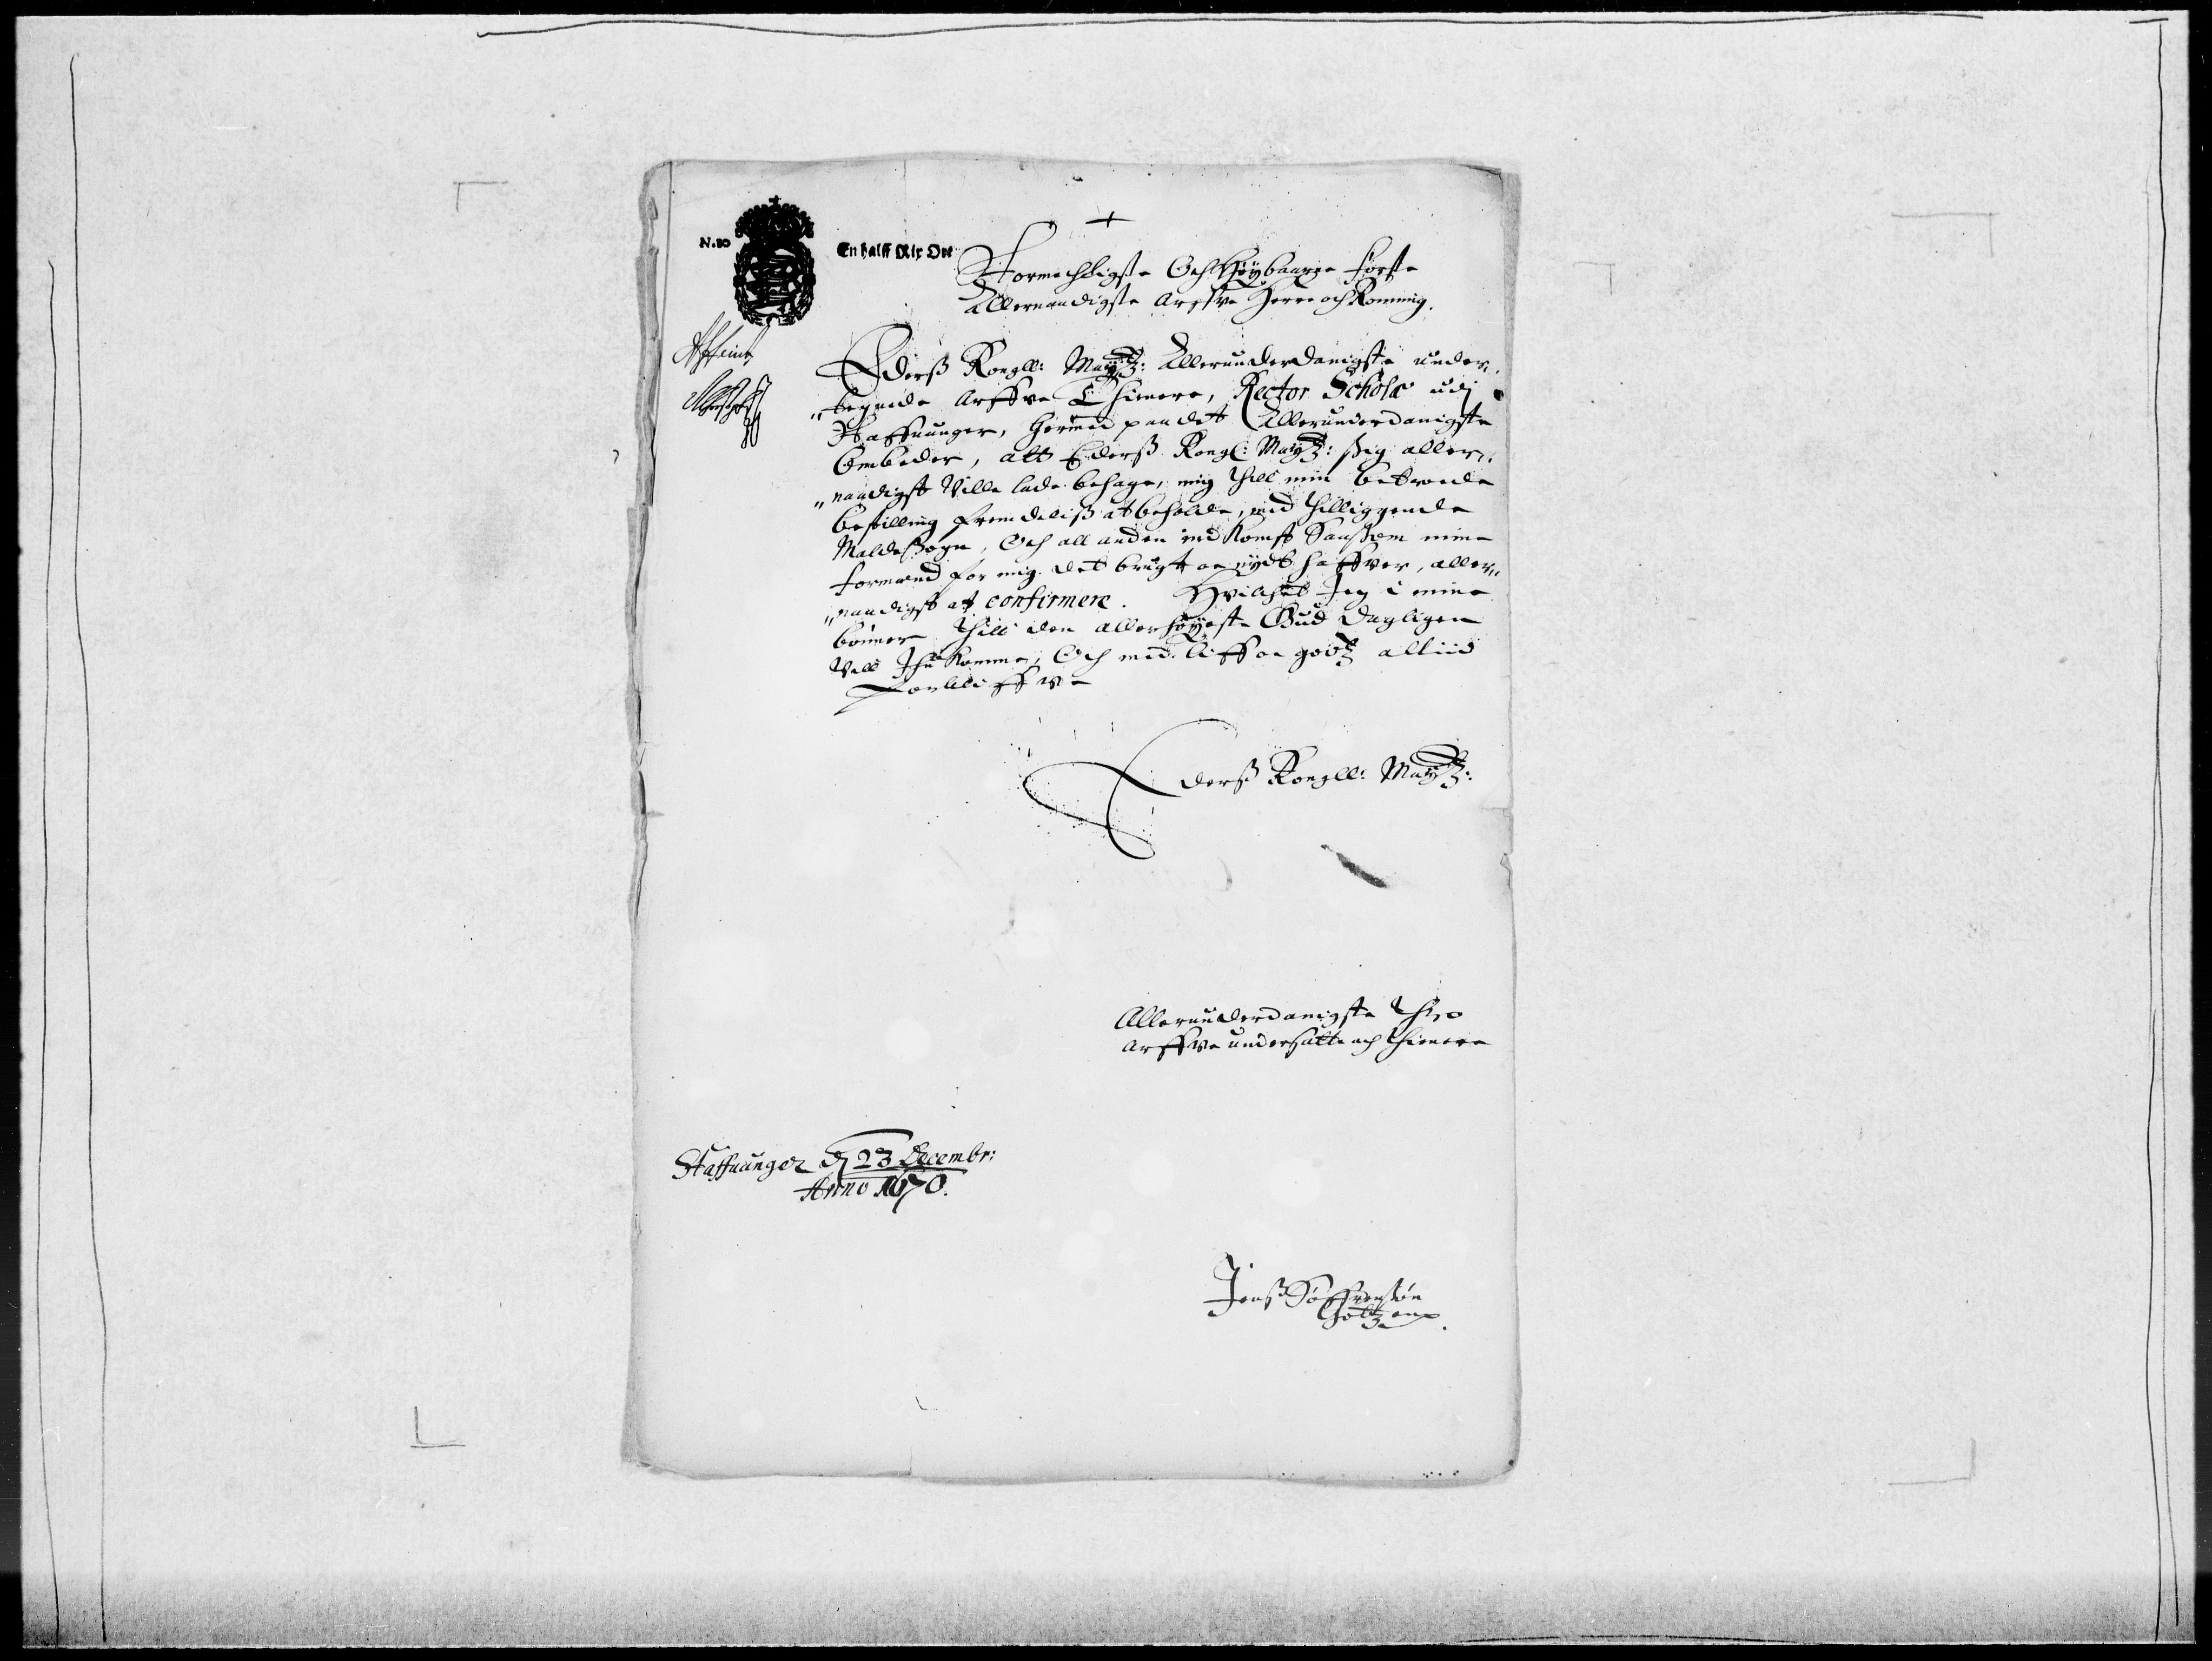 N. 80
En halff Rix Ort
+
Stormechtigste Och Høybaarne Første
Allernaadigste Arffve Herre och Konning.
Ederß Kongll: Maytz: Allerunderdanigste under-
tegnede Arffve Thienere, Rector Scholæ udj
Staffuanger, hermed paa det Allerunderdanigste
Ombeder, att Ederß Kongl: Maytz: ßig aller-
naadigst Ville lade behage, mig till min betroede
bestilling fremdeliß at beholde, med tilliggende
Maldeßogn, Och all anden indKomst Saaßom mine
formænd for mig det brugt oc nydt haffver, aller-
naadigst at confirmere. Hvilchet Jeg i mine
bønner till den allerhøyeste Gud dagligen
Vill JhuKomme, Och med liff oc godtz altiid
forbliffve
Ederß Kongll: Maytz:
Allerunderdanigste Thro
Arffve undersaatte och thienere
Staffuanger d 23 Decembr:
Anno 1670.
Jenß Søffrenßøn